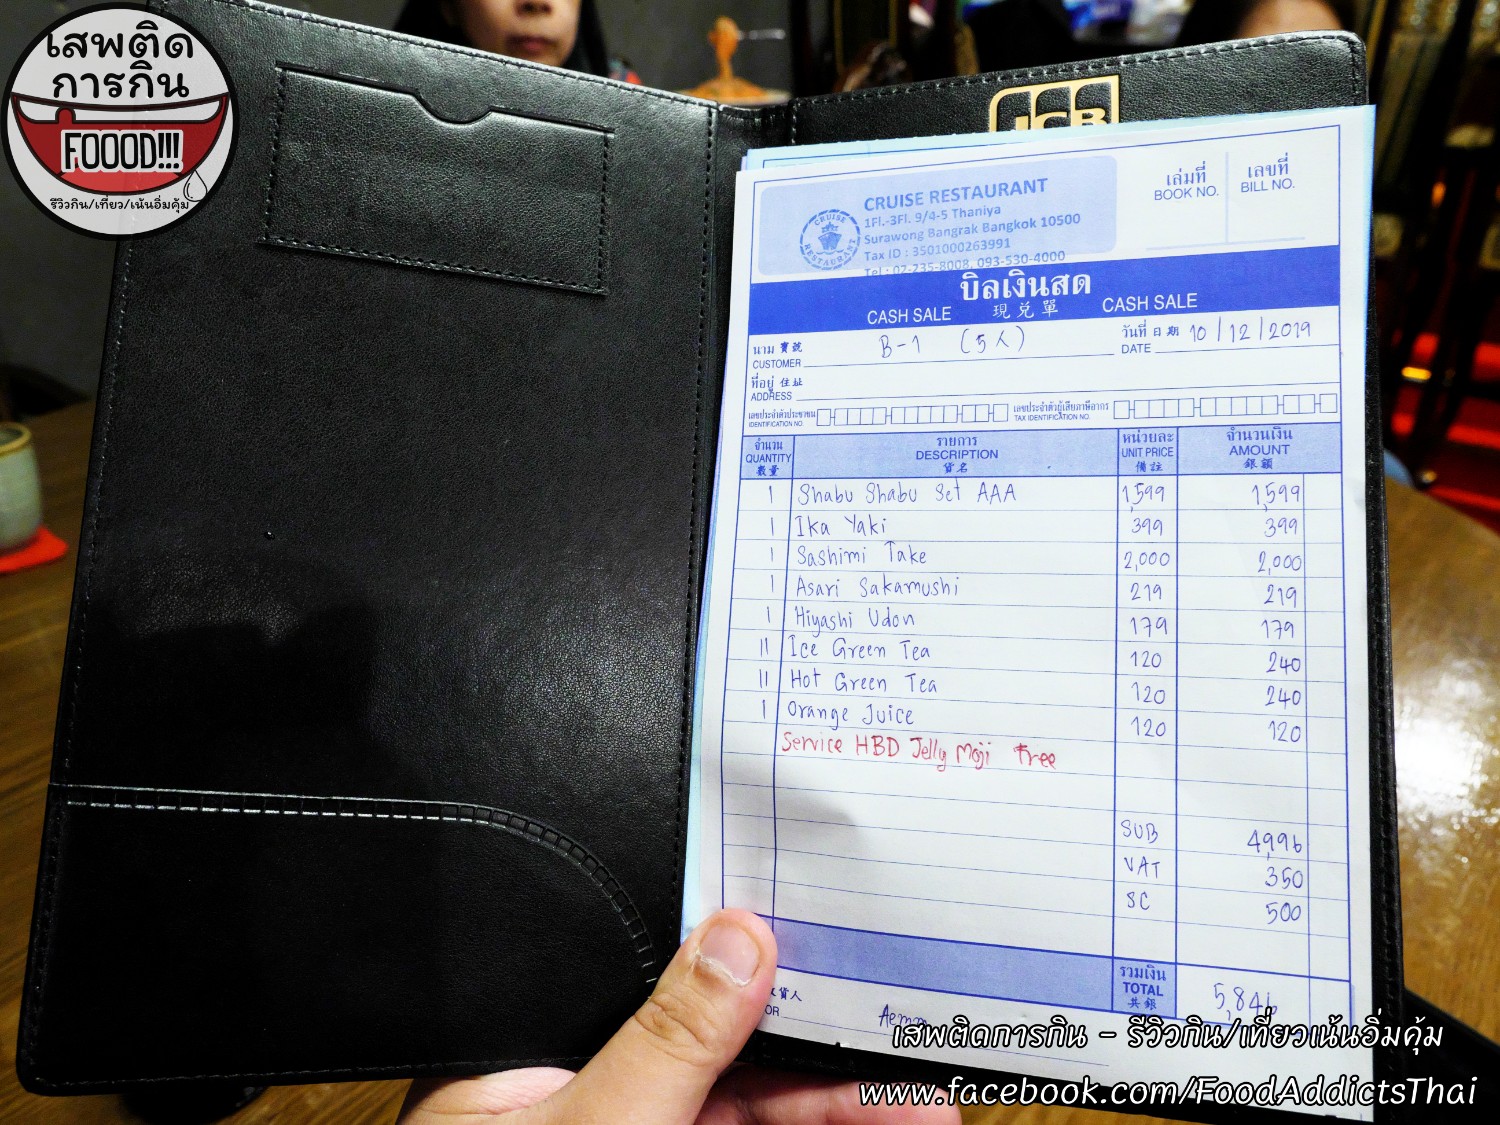 เสพติด
การกิน
FOOOD!!!
รีวิวกิน/เที่ยว/เน้นอิ่มคุ้ม
JCB
CRUISE RESTAURANT
1Fl.-3Fl. 9/4-5 Thaniya
Surawong Bangrak Bangkok 10500
Tax ID : 3501000263991
Tel : 02-235-8008, 093-530-4000
CRUISE RESTAURANT
เล่มที่ เลขที่
BOOK NO. BILL NO.
บิลเงินสด
CASH SALE 現兌單 CASH SALE
นาม 寶號 B-1 (5人) วันที่ 日期 10/12/2019
CUSTOMER DATE
ที่อยู่ 住址
ADDRESS
เลขประจำตัวประชาชน เลขประจำตัวผู้เสียภาษีอากร
IDENTIFICATION NO. TAX IDENTIFICATION NO.
จำนวน รายการ หน่วยละ จำนวนเงิน
QUANTITY DESCRIPTION UNIT PRICE AMOUNT
數量 貨名 備註 銀額
1 Shabu Shabu Set AAA 1,599 1,599
1 Ika Yaki 399 399
1 Sashimi Take 2,000 2,000
1 Asari Sakamushi 219 219
1 Hiyashi Udon 179 179
11 Ice Green Tea 120 240
11 Hot Green Tea 120 240
1 Orange Juice 120 120
Service HBD Jelly Moji Free
SUB 4,996
VAT 350
SC 500
รวมเงิน
TOTAL 5,846
共銀
收貨人
OR Aemm
เสพติดการกิน - รีวิวกิน/เที่ยวเน้นอิ่มคุ้ม
www.facebook.com/FoodAddictsThai